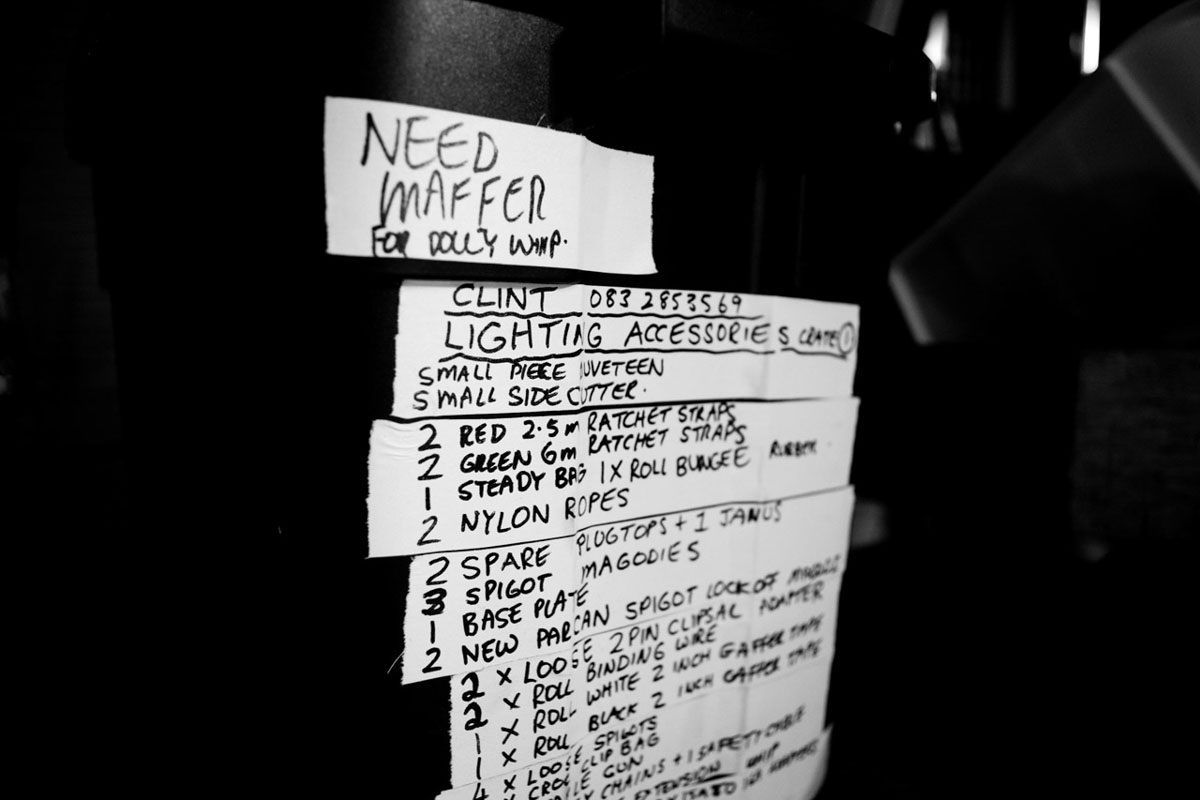 NEED
MAFFER
FOR DOLLY WHIP.
CLINT 083 2853569
LIGHTING ACCESSORIES CRATE 1
SMALL PIECE DUVETEEN
SMALL SIDE CUTTER.
2 RED 2.5m RATCHET STRAPS
2 GREEN 6m RATCHET STRAPS
1 STEADY BAG 1X ROLL BUNGEE RUBBER
2 NYLON ROPES
2 SPARE PLUGTOPS + 1 JANUS
3 SPIGOT MAGODIES
1 BASE PLATE
2 NEW PARCAN SPIGOT LOCKOFF
2 X LOOSE 2PIN CLIPSAL ADAPTER
2 X ROLL BINDING WIRE
1 X ROLL WHITE 2 INCH GAFFER TAPE
1 X ROLL BLACK 2 INCH GAFFER TAPE
4 X LOOSE SPIGOTS
X CROC CLIP BAG
GUN
CHAINS + 1 SAFETY CABLE
EXTENSION WHIP